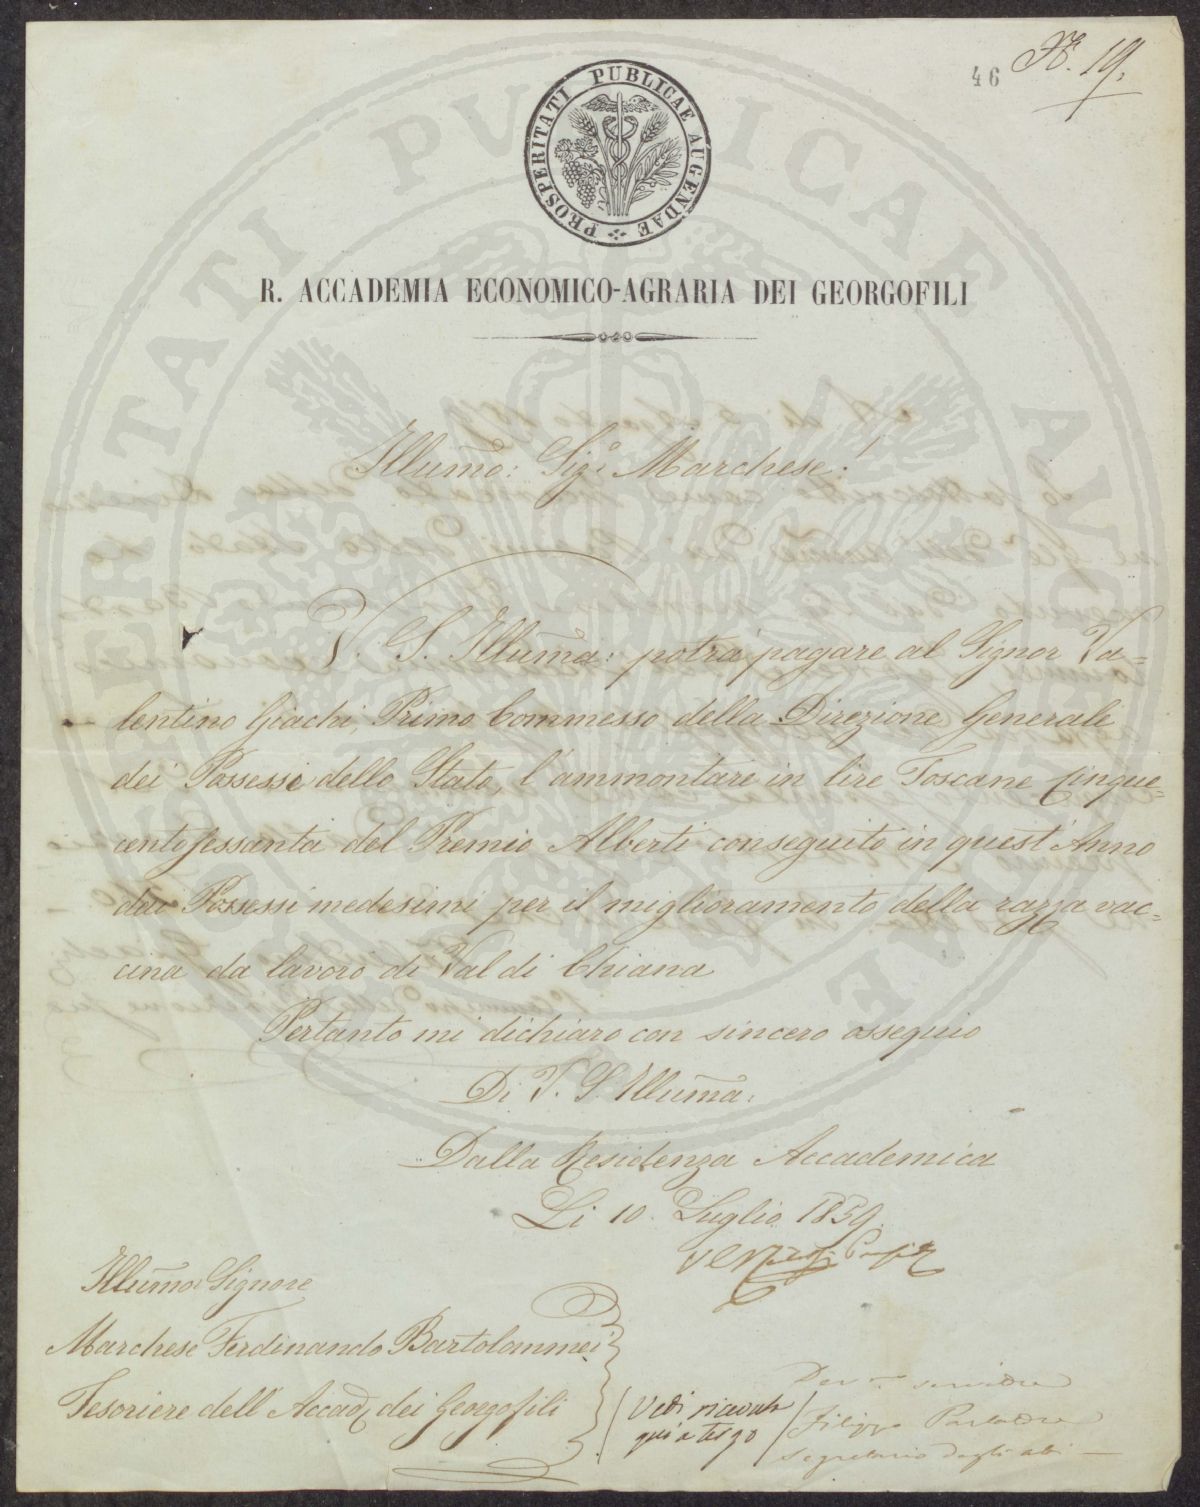 46 N.° 19.
PROSPERITATI PUBLICAE AUGENDAE
R. ACCADEMIA ECONOMICO-AGRARIA DEI GEORGOFILI
Illumo: Sigr Marchese!
V. S. Illuma: potrà pagare al Signor Va=
lentino Giachi, Primo Commesso della Direzione Generale
dei Possessi dello Stato, l'ammontare in lire Toscane Cinque=
centosessanta del Premio Alberti conseguito in quest'Anno
dai Possessi medesimi per il miglioramento della razza vac=
cina da lavoro di Val di Chiana
Pertanto mi dichiaro con sincero ossequio
Di V. S. Illuma:
Dalla Residenza Accademica
Li 10. Luglio 1859.
Illumo: Signore
Marchese Ferdinando Bartolommei
Tesoriere dell'Accad. dei Georgofili
Vedi ricevuta
qui a tergo
Dev.mo servidore
Filippo Parlatore
Segretario degli atti